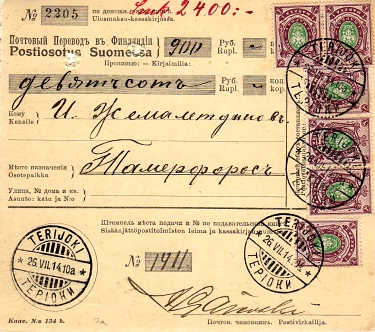 № 2205 по денежн.
Ulosmaksu-kassakirjassa.
2400:-
Почтовый Переводъ въ Финляндіи 900 Руб. Коп.
Postiosotus Suomessa Rupl. Kop.
Прописью: – Kirjaimilla:
девятьсотъ Руб.
Rupl.
Кому
Kenelle И. Жемалетдиновъ
Мѣсто назначенія
Osotepaikka Таммерфорсъ
Улица, № дома и кв.
Asunto: katu ja N:o
Штемпель мѣста подачи и № по подавательной
Sisäänjättöpostitoimiston leima ja
TERIJOKI
26.VII.14.10a
ТЕРІОКИ
№ 1911
Почтов. чиновникъ. Postivirkailija.
Канц. № 134 b.
TERIJOKI
26.VII.14.10a
ТЕРІОКИ